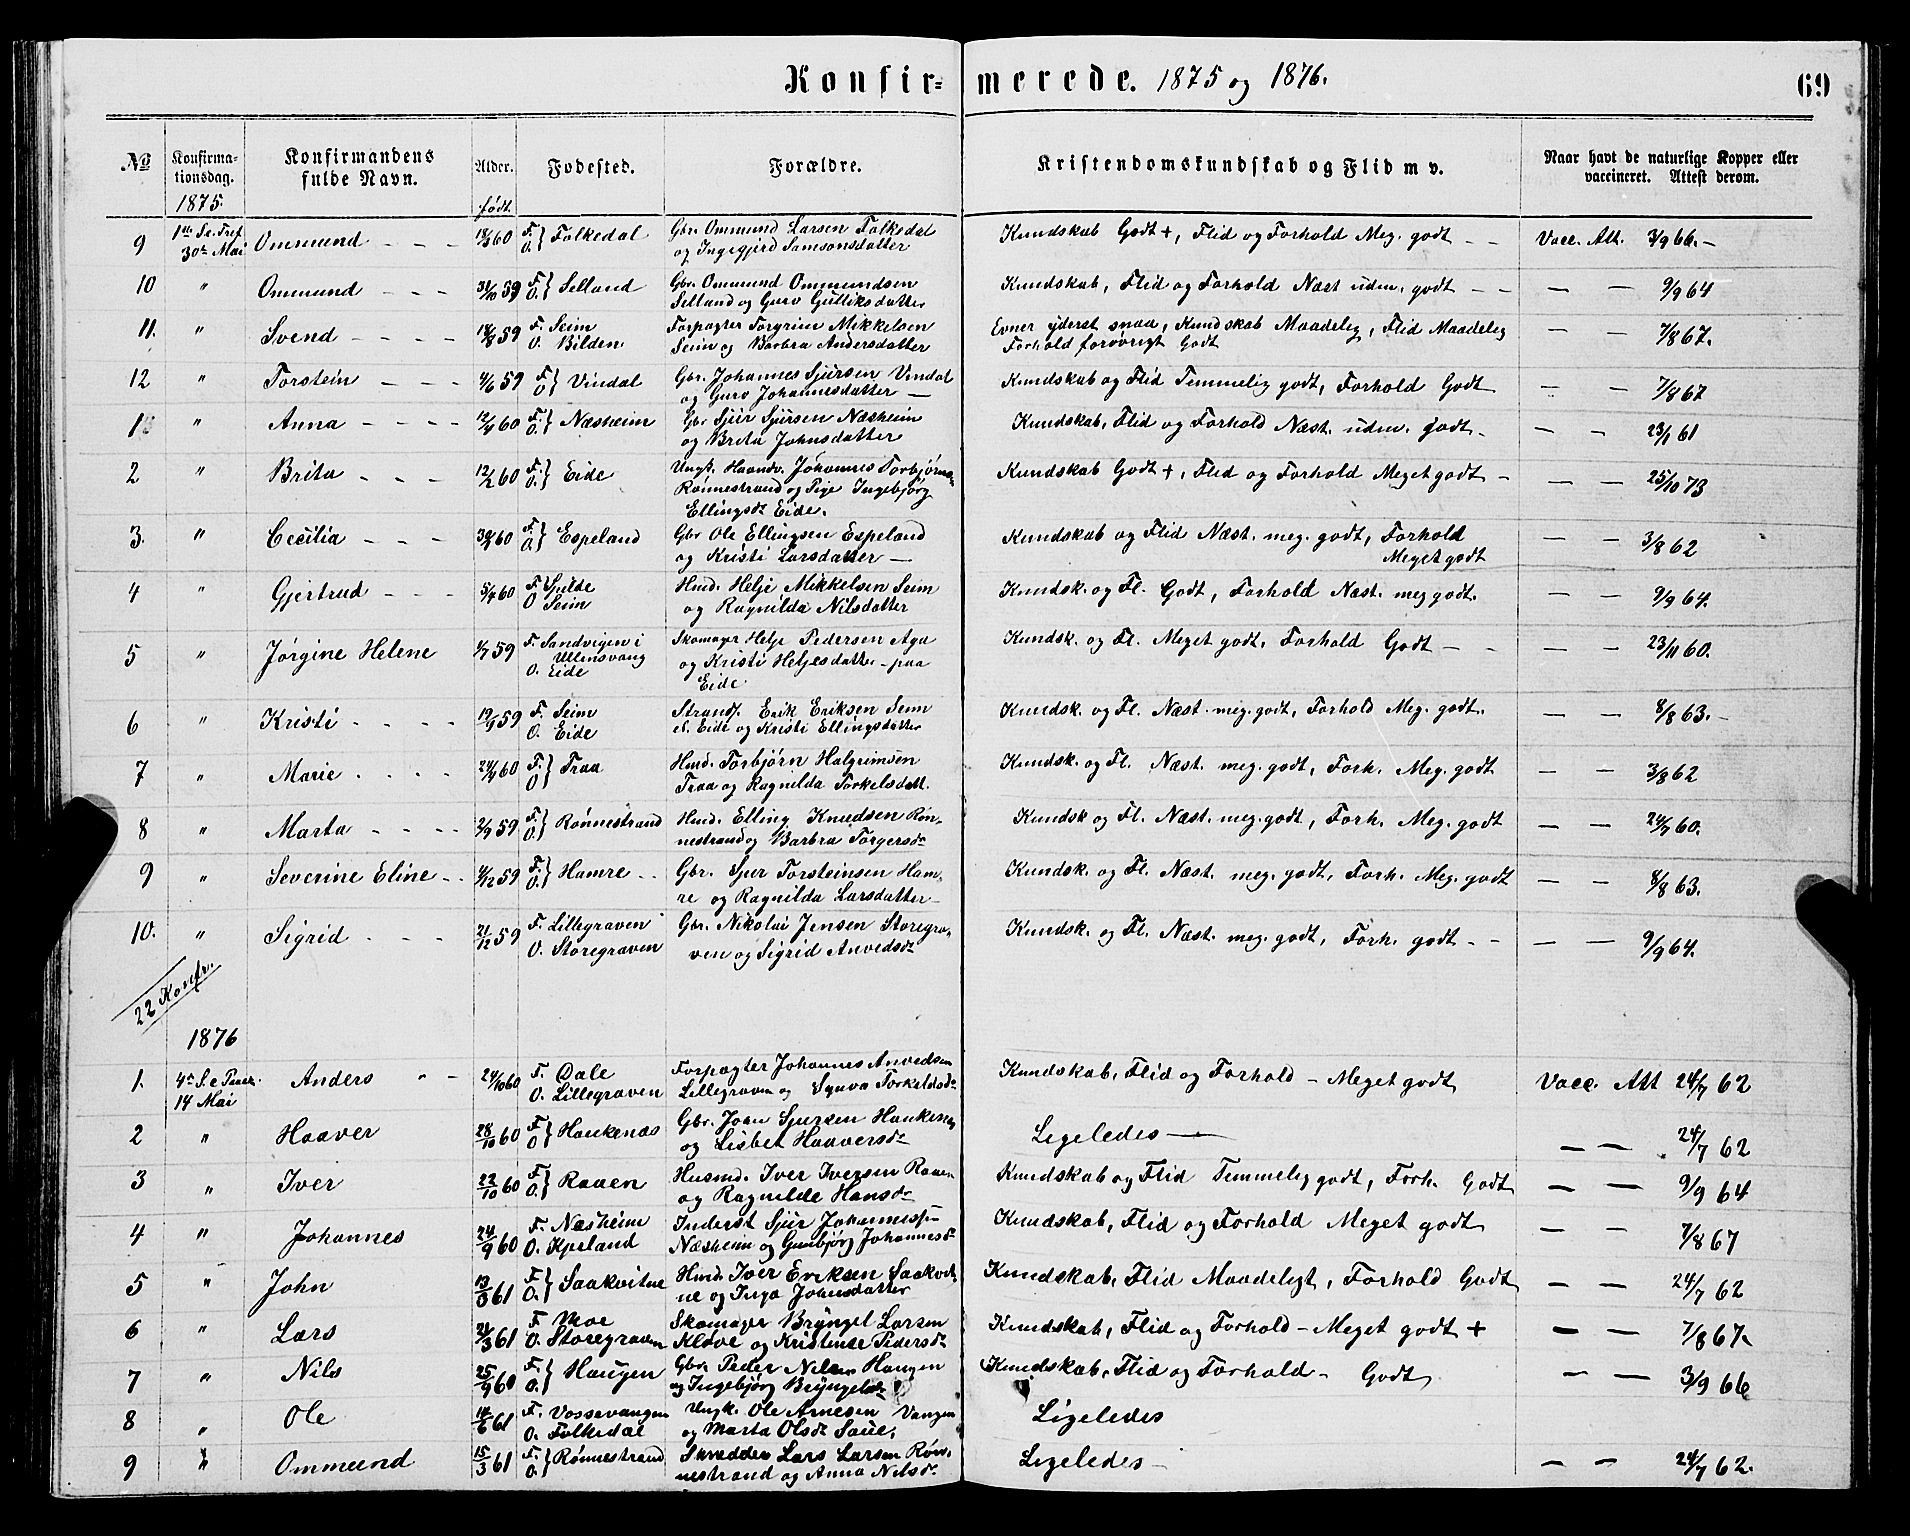 Konfir= merede. 1875 og 1876. 69
No Konfirma-tionsdag. Konfirmandens fulde Navn. Alder. Fødested. Forældre. Kristendomskundskab og Flid m v. Naar havt de naturlige Kopper eller vaccineret. Attest derom.
1875. født.
9 30te Mai Ommund 60 F. O. } Folkedal Gbr. Ommund Larsen Folkedal Kundskab Godt +, Flid og Forhold Meg. godt Vacc. Att. 3/9 66.
og Ingegjerd Samsonsdatter
10 " Ommund 31/10 59 F. O. } Selland Gbr. Ommund Ommundsen Kundskab, Flid og Forhold Næst udm. godt — — 9/9 64
Selland og Guro Gulliksdatter
11. " Svend 59 F. Seim Forpagter Torgrim Mikkelsen Evner yderst smaa, Kundskab Maadelig, Flid Maadelig — — 7/8 67.
O. Bilden Seim og Barbra Andersdatter Forhold forøvrigt Godt
12 " Torstein 4/6 59 F. O } Vindal Gbr. Johannes Sjursen Vindal Kundskab og Flid Temmelig godt, Forhold Godt — — 7/8 67
og Guro Johannesdatter —
1 " Anna 12/4 60 F. O. } Næsheim Gbr Sjur Sjursen Næsheim Kundskab, Flid og Forhold Næst. udm. godt — — 23/1 61
og Brita Johnsdatter
2 " Brita 12/2 60 F. O. } Eide Ungk. Haandv. Johannes Torbjørns. Kundskab Godt +, Flid og Forhold Meget godt — — 25/10 73
Rønnestrand og Pige Ingebjørg
Ellingsdr Eide.
3. " Cecilia 60 F. O. } Espeland Gbr Ole Ellingsen Espeland Kundskab og Flid Næst. meg. godt, Forhold — — 3/8 62
og Kristi Larsdatter — Meget godt
4 " Gjertrud 5/4 60 F. Spilde Hmd. Helje Mikkelsen Seim Kundsk. og Fl. Godt, Forhold Næst. meg godt. — — 9/9 64.
O Seim og Ragnilda Nilsdatter
5 " Jørgine Helene 1/7 59 F. Sandvigen i Skomager Helje Pedersen Aga Kundsk. og Fl. Meget godt, Forhold Godt — — 23/11 60.
Ullensvang og Kristi Heljesdatter paa
O. Eide Eide
6 " Kristi 19/9 59 F. Seim Strands. Erik Eriksen Seim Kundsk. og Fl. Næst. meg. godt, Forhold Meg. godt. — — 8/8 63.
O. Eide Eide og Kristi Ellingsdatter
7 " Marie 24/4 60 F. O } Traa Hmd. Torbjørn Halgrimsen Kundsk. og Fl. Næst. meg. godt, Forh. Meg. godt — — 3/8 62
Traa og Ragnilda Torkelsdatt.
8 " Marta 2/9 59 F. O } Rønnestrand Hmd. Elling Knudsen Røn- Kundsk og Fl. Næst. meg. godt, Forh. Meg. godt — — 24/7 60.
nestrand og Barbra Torgersdr
9 " Severine Eline 4/12 59 F. O. } Hamre Gbr. Sjur Torsteinsen Ham- Kundsk. og Fl. Næst. meg. godt, Forh. Meg. godt — — 8/8 63.
re og Ragnilda Larsdatter
10. " Sigrid 21/12 59 F. Lillegraven Gbr. Nikolai Jensen Storegra- Kundsk. og Fl. Næst. meg. godt, Forh. godt — — 9/9 64.
O. Storegraven ven og Sigrid Anvedsdr
22 Konfr.
1876
1. 4de S. e Paask. Anders 24/10 60 F. Dale Forpagter Johannes Anvedsen Kundskab, Flid og Forhold — Meget godt Vacc. Att 24/7 62
14 Mai O. Lillegraven Lillegraven og Synva Torkeldsdr
2 " Haaver 28/10 60 F. O } Haukenæs Gbr. John Sjursen Haukenæs Ligeledes — — — 24/7 62
og Lisbet Haaversdr
3 " Iver 22/10 60 F. O. } Raaen Husmd. Iver Iversen Raaen Kundskab og Flid Temmelig godt, Forh. Godt — — 9/9 64
og Ragnilde Hansdr
4 " Johannes 24/9 60 F. Næsheim Inderst Sjur Johannes Kundskab, Flid og Forhold Meget godt — — 7/8 67
O. Kjerland Næsheim og Gunbjørg Johannesdr
5 " John 13/3 61 F. O. } Saakvitne Hmd. Iver Eriksen Saakvit- Kundskab, Flid Maadeligt, Forhold Godt — — 24/7 62
ne og Inga Johnsdatter
6 " Lars 21/3 61 F Moe Skomager Bryngel Larsen Kundskab, Flid og Forhold — Meget godt + — — 7/8 67.
O. Storegraven Kløve og Kristense Pedersdr
7 " Nils 25/9 60 F. O. } Haugen Gbr. Peder Nilsen Haugen Kundskab, Flid og Forhold — Godt — — 3/9 66
og Ingebjørg Bryngelsdr
8 " Ole 14/6 61 F. Vossevangen Ungk. Ole Arnesen Vangen Ligeledes
O. Folkedal og Marta Olsdr Saue.
9 " Ommund 15/3 61 F. O. } Rønnestrand Skredder Lars Larsen Røn- Ligeledes — — 24/7 62.
nestrand og Anna Nilsdr